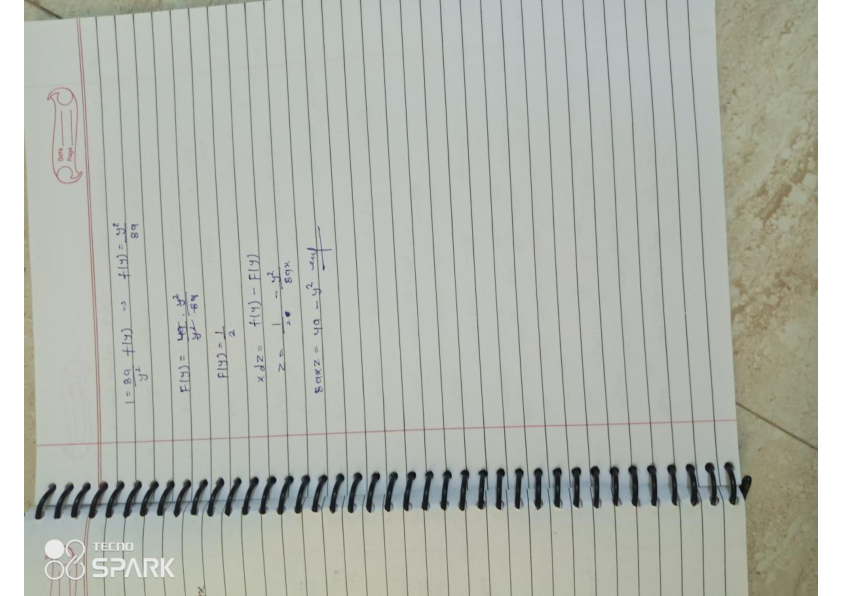 Date
Page
1 = 8a/y² f(y) ⇒ f(y) = y²/8a
F(y) = 4a/y² · y²/8a
F(y) = 1/2
x dz = f(y) - F(y)
z = 1/2x - y²/8ax
8axz = 4a - y²
TECNO
SPARK